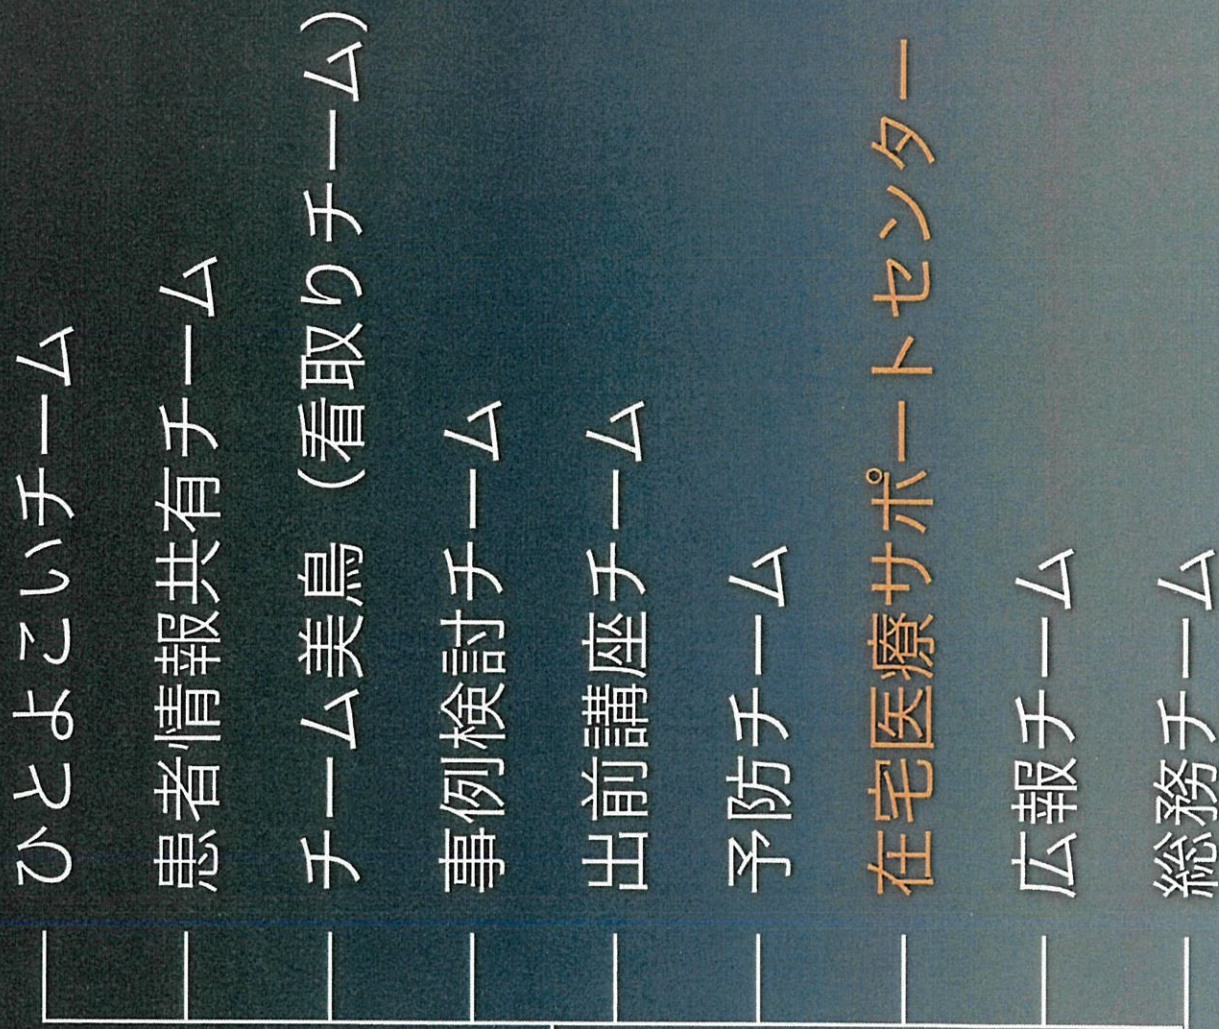 ひとよこいチーム
患者情報共有チーム
チーム美鳥（看取りチーム）
事例検討チーム
出前講座チーム
予防チーム
在宅医療サポートセンター
広報チーム
総務チーム